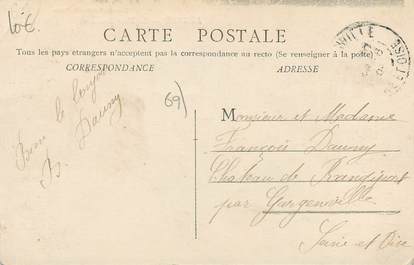 10€
CARTE POSTALE
Tous les pays étrangers n'acceptent pas la correspondance au recto (Se renseigner à la poste)
CORRESPONDANCE
ADRESSE
69)
Monsieur et Madame
François Dauny
Château de Rangiport
par Gargenville
Seine et Oise